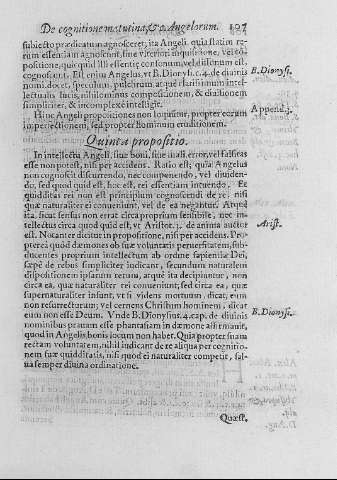 De cognitione matutina, & v. Angelorum. 197
subiecto prædicatum agnosceret, ita Angeli. quia statim re-
rum essentiam agnoscunt, sine viterior inquisitione, vel co-
positione, quicquid illi essentię consonum, vel dissonum est.
cognoscunt. Est enim Angelus, vt B. Dionysi. c. 4. de diuinis
nomi. docet, speculum, pulchrum, atque clarissimum intel-
lectualis lucis, nihil nimis compositionem, & diuisionem
simpliciter, & incomplexè intelligit.
B. Dionysi.
Hinc Angeli propositiones non loquitur, propter eorum
imperfectionem, sed propter hominum eruditionem.
Append. j.
Quinta propositio.
In intellectu Angeli, siue boni, siue mali, error, vel falsitas
esse non potest, nisi per accidens. Ratio est; quia Angelus
non cognoscit discurrendo, nec componendo, vel diuiden-
do, sed quod quid est, hoc est, rei essentiam intuendo. Et
quidditas rei non est principium cognoscendi de re, nisi
quæ naturaliter ei conueniunt, vel de ea negantur. Atque
ita, sicut sensus non errat circa proprium sensibile, nec in-
tellectus circa quod quid est, vt Aristot. j. de anima auctor
est. Notanter dicitur in propositione, nisi per accidens. Pro-
Arist.
pterea quòd dæmones ob suæ voluntatis peruersitatem, sub-
ducentes proprium intellectum ab ordine sapientiæ Dei,
sæpè de rebus simpliciter iudicant, secundum naturalem
dispositionem ipsarum rerum, atque ita decipiuntur, nem
circa ea, quæ naturaliter rei conueniunt; sed circa ea, quæ
supernaturaliter insunt, vt si videns mortuum, dicat, eum
non resurrecturum; vel cernens Christum hominem, dicat
eum non esse Deum. Vnde B. Dionysius. 4. cap. de diuinis
B. Dionysi.
nominibus prauum esse phantasiam in dæmone affirmauit,
quod in Angelis bonis locum non habet. Quia propter suam
rectam voluntatem, nihil iudicant de re aliqua per cognitio-
nem suæ quidditatis, nisi quod ei naturaliter competit, sal-
ua semper diuina ordinatione.
Quæst.